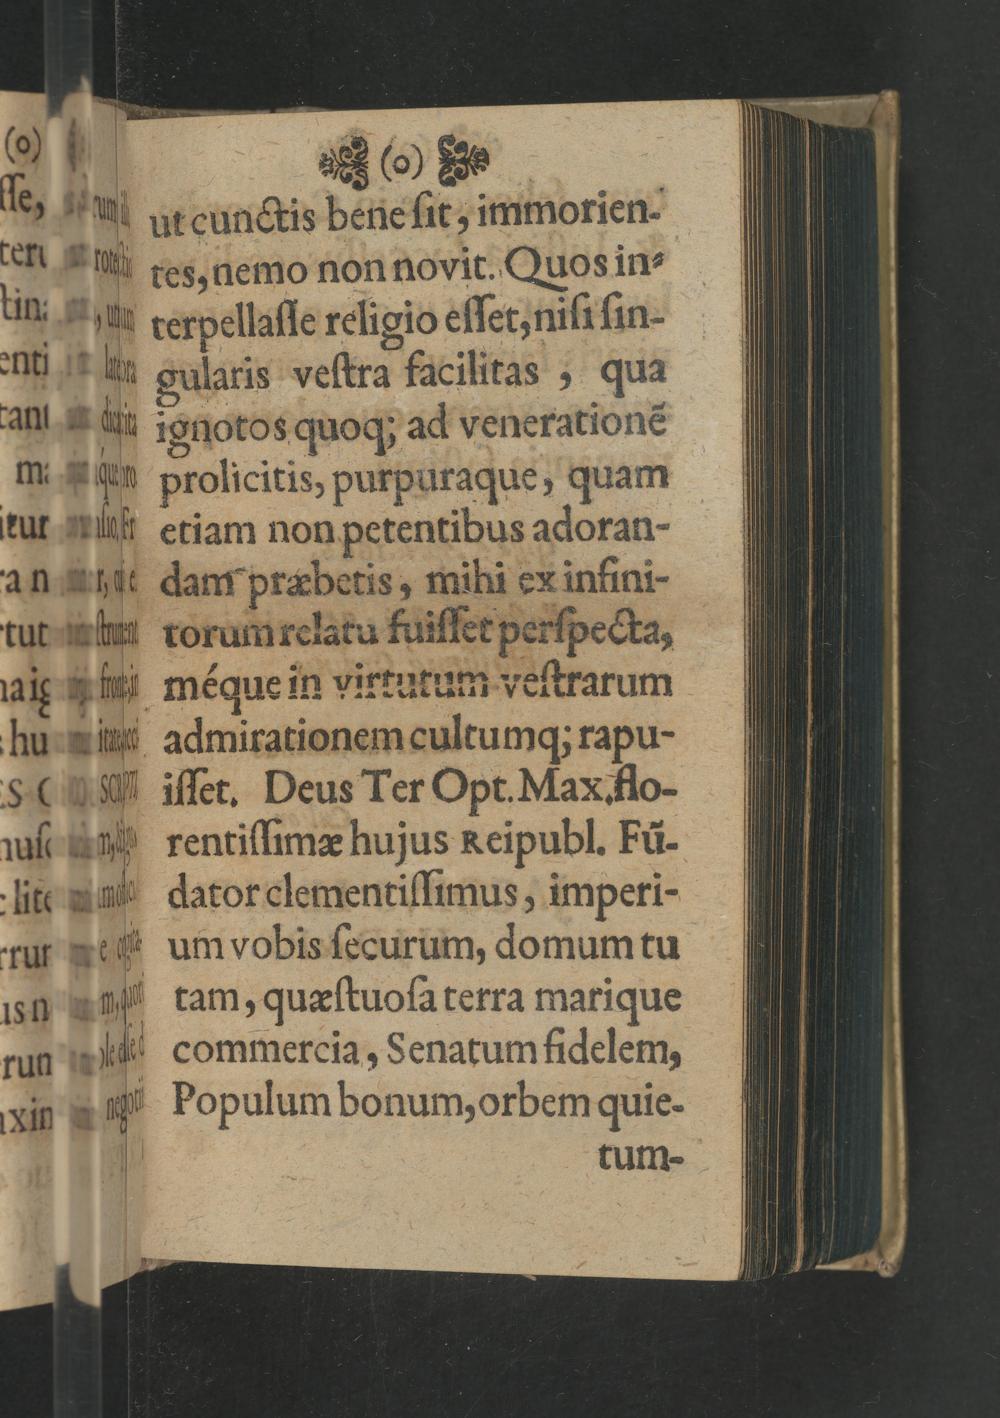 (o)
ut cunctis bene ſit, immorien-
tes, nemo non novit. Quos in-
terpellaſſe religio eſſet, niſi ſin-
gularis veſtra facilitas , qua
ignotos quoq; ad venerationẽ
prolicitis, purpuraque, quam
etiam non petentibus adoran-
dam præbetis, mihi ex infini-
torum relatu fuiſſet perſpecta,
méque in virtutum veſtrarum
admirationem cultumq; rapu-
iſſet. Deus Ter Opt. Max. flo-
rentiſſimæ hujus Reipubl. Fũ-
dator clementiſſimus, imperi-
um vobis ſecurum, domum tu
tam, quæſtuoſa terra marique
commercia, Senatum fidelem,
Populum bonum, orbem quie-
tum-